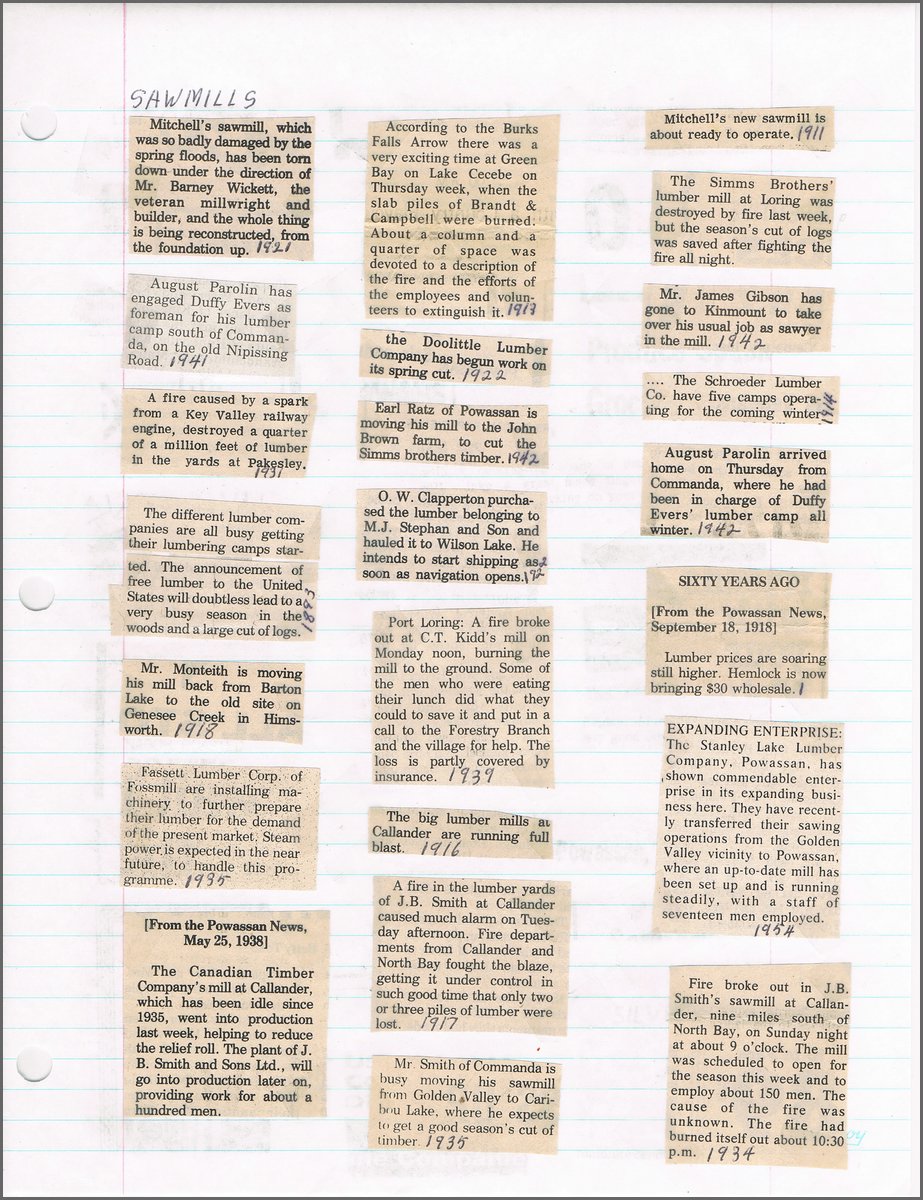 SAWMILLS
Mitchell's sawmill, which
was so badly damaged by the
spring floods, has been torn
down under the direction of
Mr. Barney Wickett, the
veteran millwright and
builder, and the whole thing
is being reconstructed, from
the foundation up. 1921
August Parolin has
engaged Duffy Evers as
foreman for his lumber
camp south of Comman-
da, on the old Nipissing
Road. 1941
A fire caused by a spark
from a Key Valley railway
engine, destroyed a quarter
of a million feet of lumber
in the yards at Pakesley.
1931
The different lumber com-
panies are all busy getting
their lumbering camps star-
ted. The announcement of
free lumber to the United
States will doubtless lead to a
very busy season in the
woods and a large cut of logs.
1893
Mr. Monteith is moving
his mill back from Barton
Lake to the old site on
Genesee Creek in Hims-
worth. 1918
Fassett Lumber Corp. of
Fossmill are installing ma-
chinery to further prepare
their lumber for the demand
of the present market. Steam
power is expected in the near
future, to handle this pro-
gramme. 1935
[From the Powassan News,
May 25, 1938]
The Canadian Timber
Company's mill at Callander,
which has been idle since
1935, went into production
last week, helping to reduce
the relief roll. The plant of J.
B. Smith and Sons Ltd., will
go into production later on,
providing work for about a
hundred men.
According to the Burks
Falls Arrow there was a
very exciting time at Green
Bay on Lake Cecebe on
Thursday week, when the
slab piles of Brandt &
Campbell were burned.
About a column and a
quarter of space was
devoted to a description of
the fire and the efforts of
the employees and volun-
teers to extinguish it. 1913
the Doolittle Lumber
Company has begun work on
its spring cut. 1922
Earl Ratz of Powassan is
moving his mill to the John
Brown farm, to cut the
Simms brothers timber. 1942
O. W. Clapperton purcha-
sed the lumber belonging to
M.J. Stephan and Son and
hauled it to Wilson Lake. He
intends to start shipping as
soon as navigation opens.
Port Loring: A fire broke
out at C.T. Kidd's mill on
Monday noon, burning the
mill to the ground. Some of
the men who were eating
their lunch did what they
could to save it and put in a
call to the Forestry Branch
and the village for help. The
loss is partly covered by
insurance. 1939
The big lumber mills at
Callander are running full
blast. 1916
A fire in the lumber yards
of J.B. Smith at Callander
caused much alarm on Tues-
day afternoon. Fire depart-
ments from Callander and
North Bay fought the blaze,
getting it under control in
such good time that only two
or three piles of lumber were
lost. 1917
Mr. Smith of Commanda is
busy moving his sawmill
from Golden Valley to Cari-
bou Lake, where he expects
to get a good season's cut of
timber. 1935
Mitchell's new sawmill is
about ready to operate. 1911
The Simms Brothers'
lumber mill at Loring was
destroyed by fire last week,
but the season's cut of logs
was saved after fighting the
fire all night.
Mr. James Gibson has
gone to Kinmount to take
over his usual job as sawyer
in the mill. 1942
.... The Schroeder Lumber
Co. have five camps opera-
ting for the coming winter
1914
August Parolin arrived
home on Thursday from
Commanda, where he had
been in charge of Duffy
Evers' lumber camp all
winter. 1942
SIXTY YEARS AGO
[From the Powassan News,
September 18, 1918]
Lumber prices are soaring
still higher. Hemlock is now
bringing $30 wholesale.
EXPANDING ENTERPRISE:
The Stanley Lake Lumber
Company, Powassan, has
shown commendable enter-
prise in its expanding busi-
ness here. They have recent-
ly transferred their sawing
operations from the Golden
Valley vicinity to Powassan,
where an up-to-date mill has
been set up and is running
steadily, with a staff of
seventeen men employed.
1954
Fire broke out in J.B.
Smith's sawmill at Callan-
der, nine miles south of
North Bay, on Sunday night
at about 9 o'clock. The mill
was scheduled to open for
the season this week and to
employ about 150 men. The
cause of the fire was
unknown. The fire had
burned itself out about 10:30
p.m. 1934